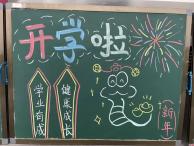 开学啦
学业有成
健康成长
新年